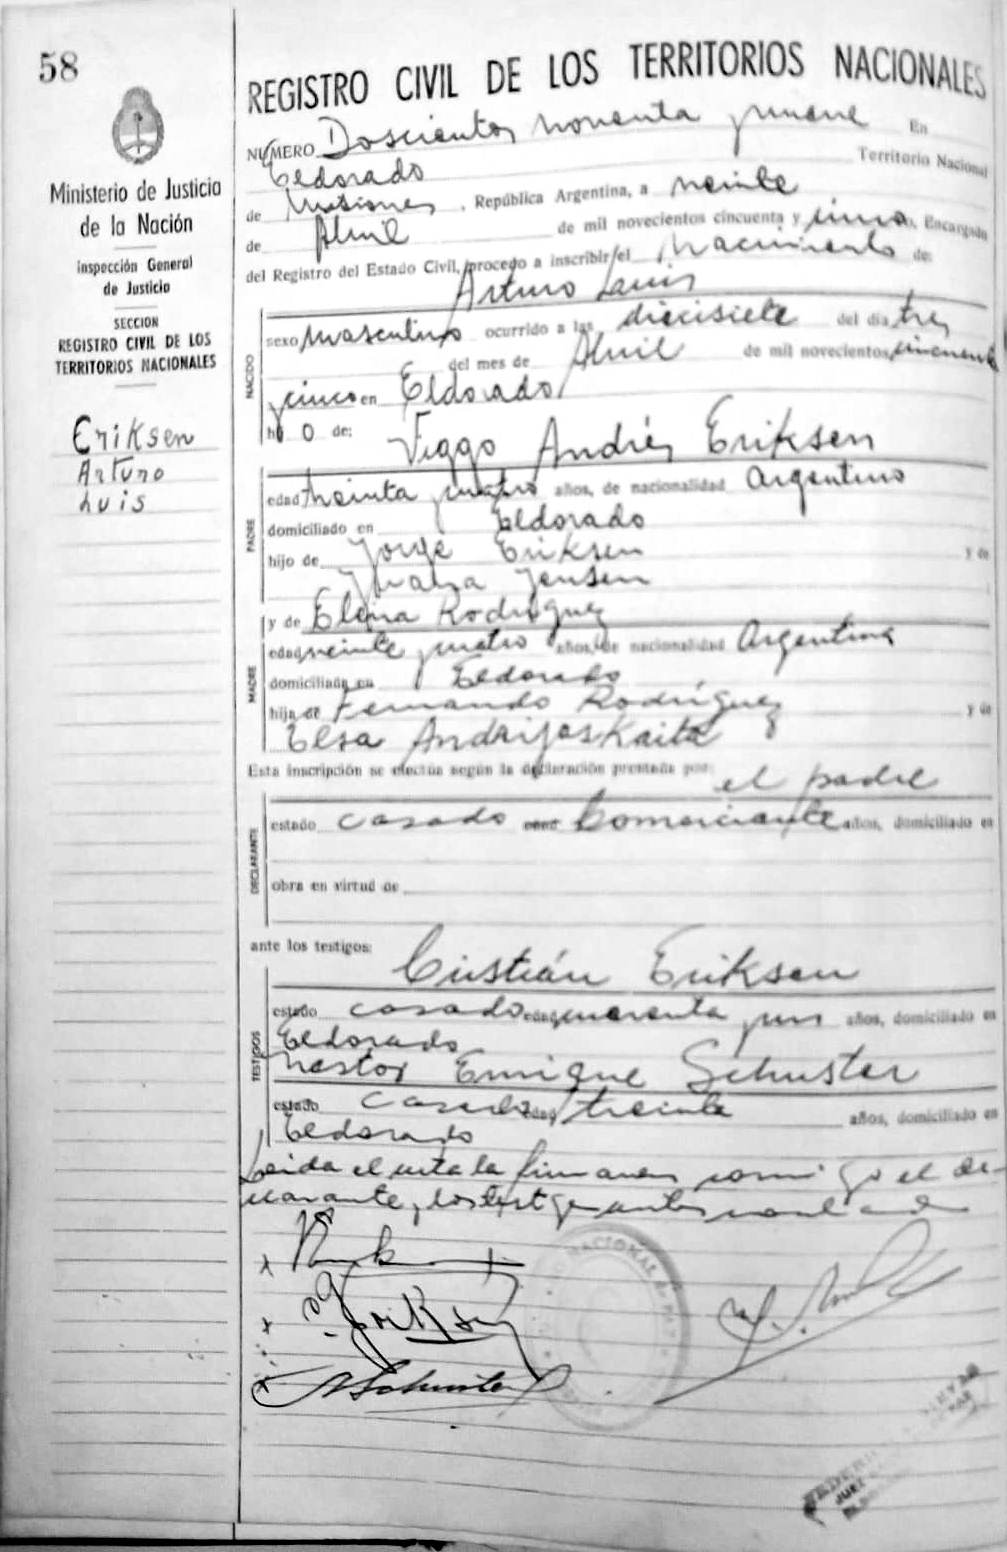 58
Ministerio de Justicia
de la Nación
Inspección General
de Justicia
SECCION
REGISTRO CIVIL DE LOS
TERRITORIOS NACIONALES
Eriksen
Arturo
Luis
REGISTRO CIVIL DE LOS TERRITORIOS NACIONALES
NUMERO Doscientos noventa y nueve En
Eldorado Territorio Nacional
de Misiones, República Argentina, a veinte
de Abril de mil novecientos cincuenta y cinco, Encargado
del Registro del Estado Civil, procedo a inscribir el Nacimiento de:
Arturo Luis
NACIDO
sexo masculino ocurrido a las diecisiete del día tres
del mes de Abril de mil novecientos cincuenta
y cinco en Eldorado
h O de:
Viggo Andrés Eriksen
PADRE
edad treinta y cuatro años, de nacionalidad Argentino
domiciliado en Eldorado
hijo de Jorge Eriksen y de
Jensen
y de Elena Rodríguez
MADRE
edad veinte y cuatro años, de nacionalidad Argentina
domiciliada en Eldorado
hija de Fernando Rodríguez y de
Elsa Andrijaskaite
Esta inscripción se efectúa según la declaración prestada por: el padre
DECLARANTE
estado casado Comerciante años, domiciliado en
obra en virtud de
ante los testigos:
Cristián Eriksen
TESTIGOS
estado casado edad cuarenta y un años, domiciliado en
Eldorado
Nestor Enrique Schuster
estado casado edad treinta años, domiciliado en
Eldorado
Leida el acta la firman conmigo el de-
clarante, los testigos
Schuster